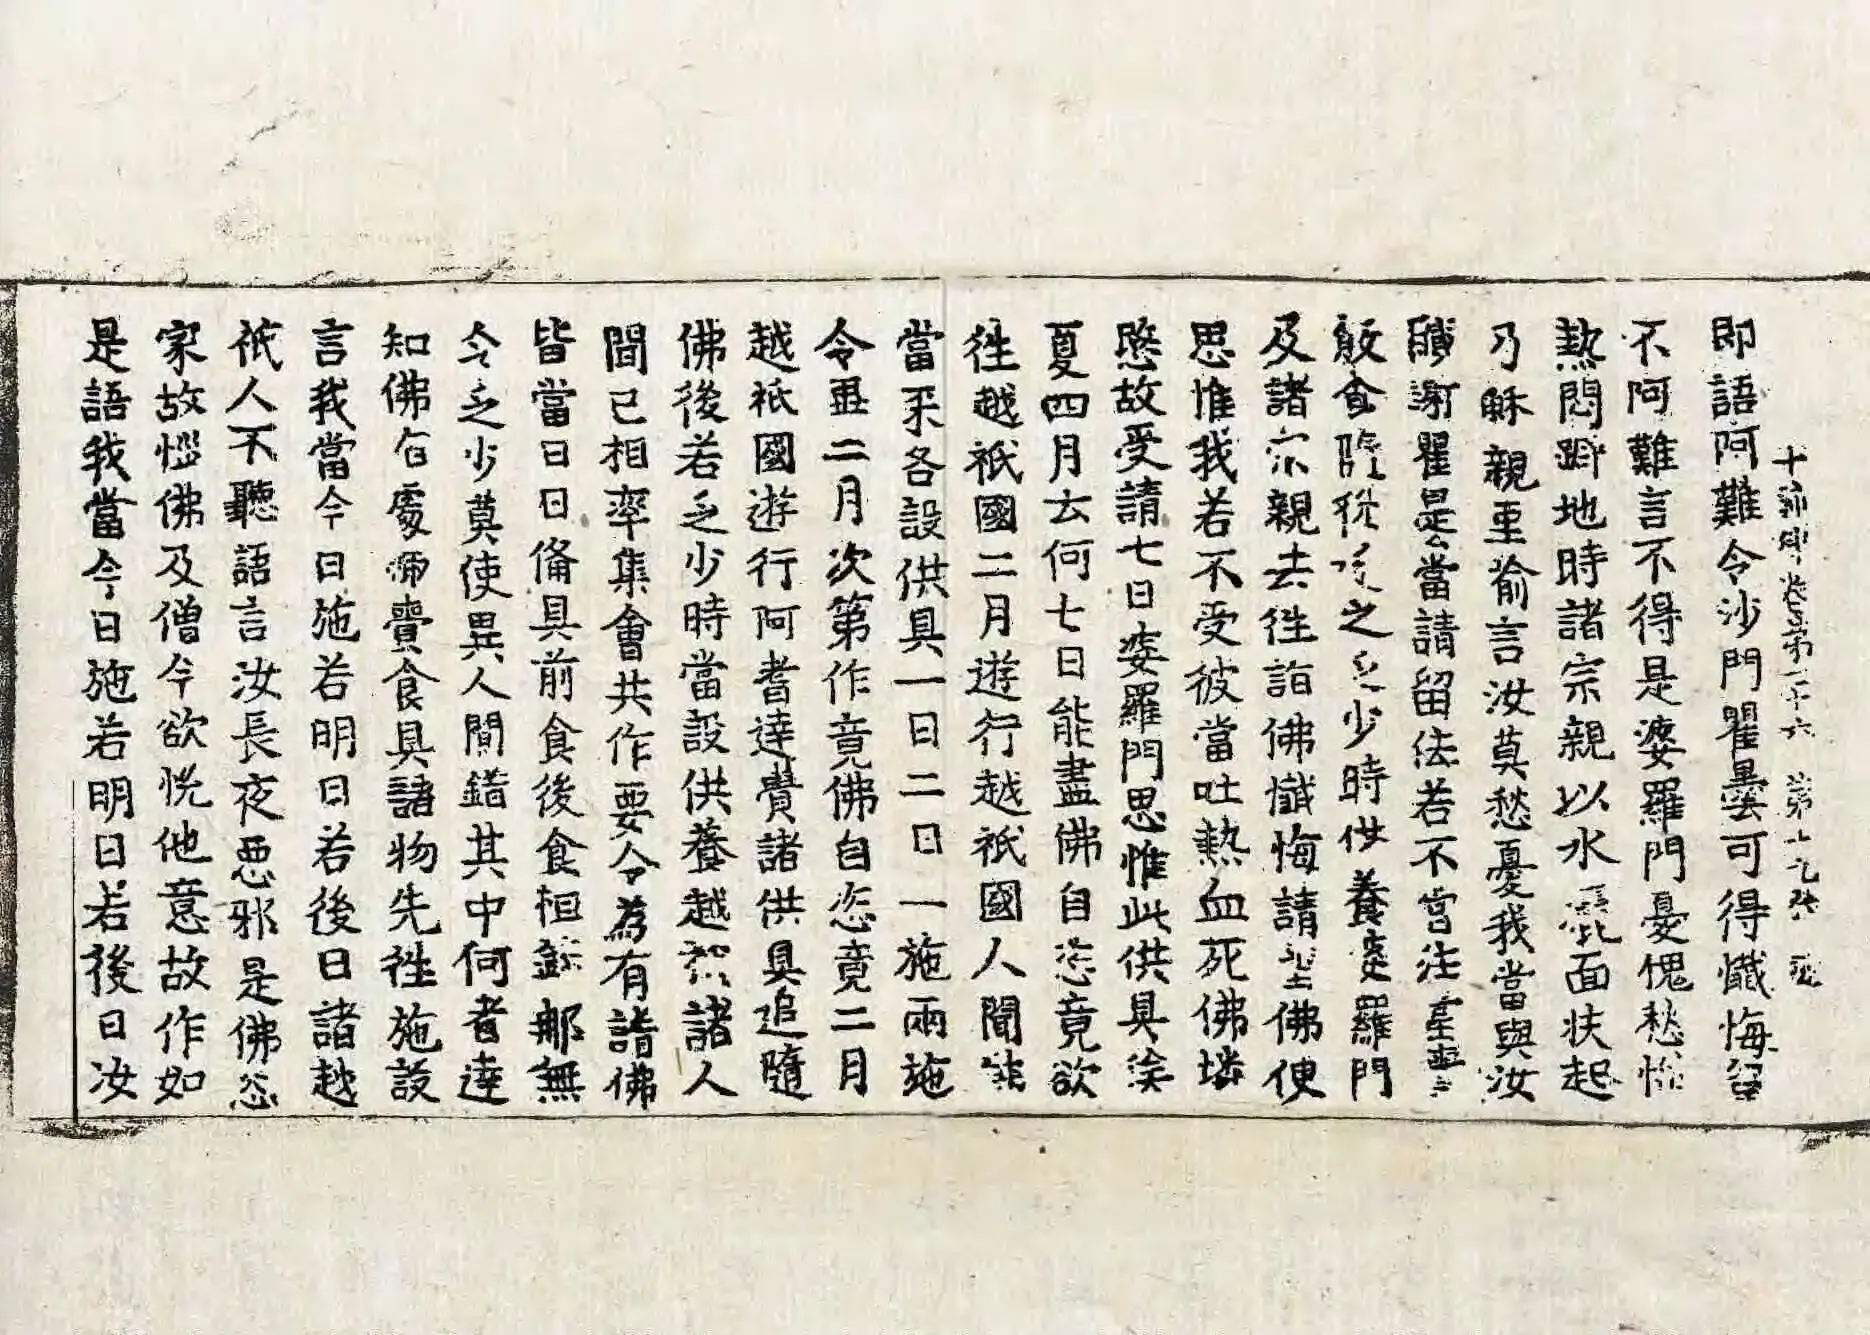 十誦律卷第二十六　第十九張
即語阿難令沙門瞿曇可得懺悔留
不阿難言不得是婆羅門憂愧愁惱
熱悶躃地時諸宗親以水灑面扶起
乃穌親里喻言汝莫愁憂我當與汝
懺謝瞿曇當請留法若不肯住
飲食隨後之乏少時供養婆羅門
及諸宗親共往詣佛懺悔請留佛便
思惟我若不受彼當吐熱血死佛憐
愍故受請七日婆羅門思惟此供具俟
夏四月云何七日能盡佛自恣竟欲
往越祇國二月遊行越祇國人聞
當來各設供具一日二日一施兩施
令五二月次第作竟佛自恣竟二月
越祇國遊行阿耆達賷諸供具追隨
佛後若乏少時當設供養越祇諸人
聞已相率集會共作要令為有諸佛
皆當日日俻具前食後食相鉢那無
令乏少莫使異人間錯其中何者達
知佛右處師賷食具諸物先往施設
言我當今日施若明日若後日諸越
祇人不聽語言汝長夜惡邪是佛忩
家故惱佛及僧今欲悅他意故作如
是語我當今日施若明日若後日汝